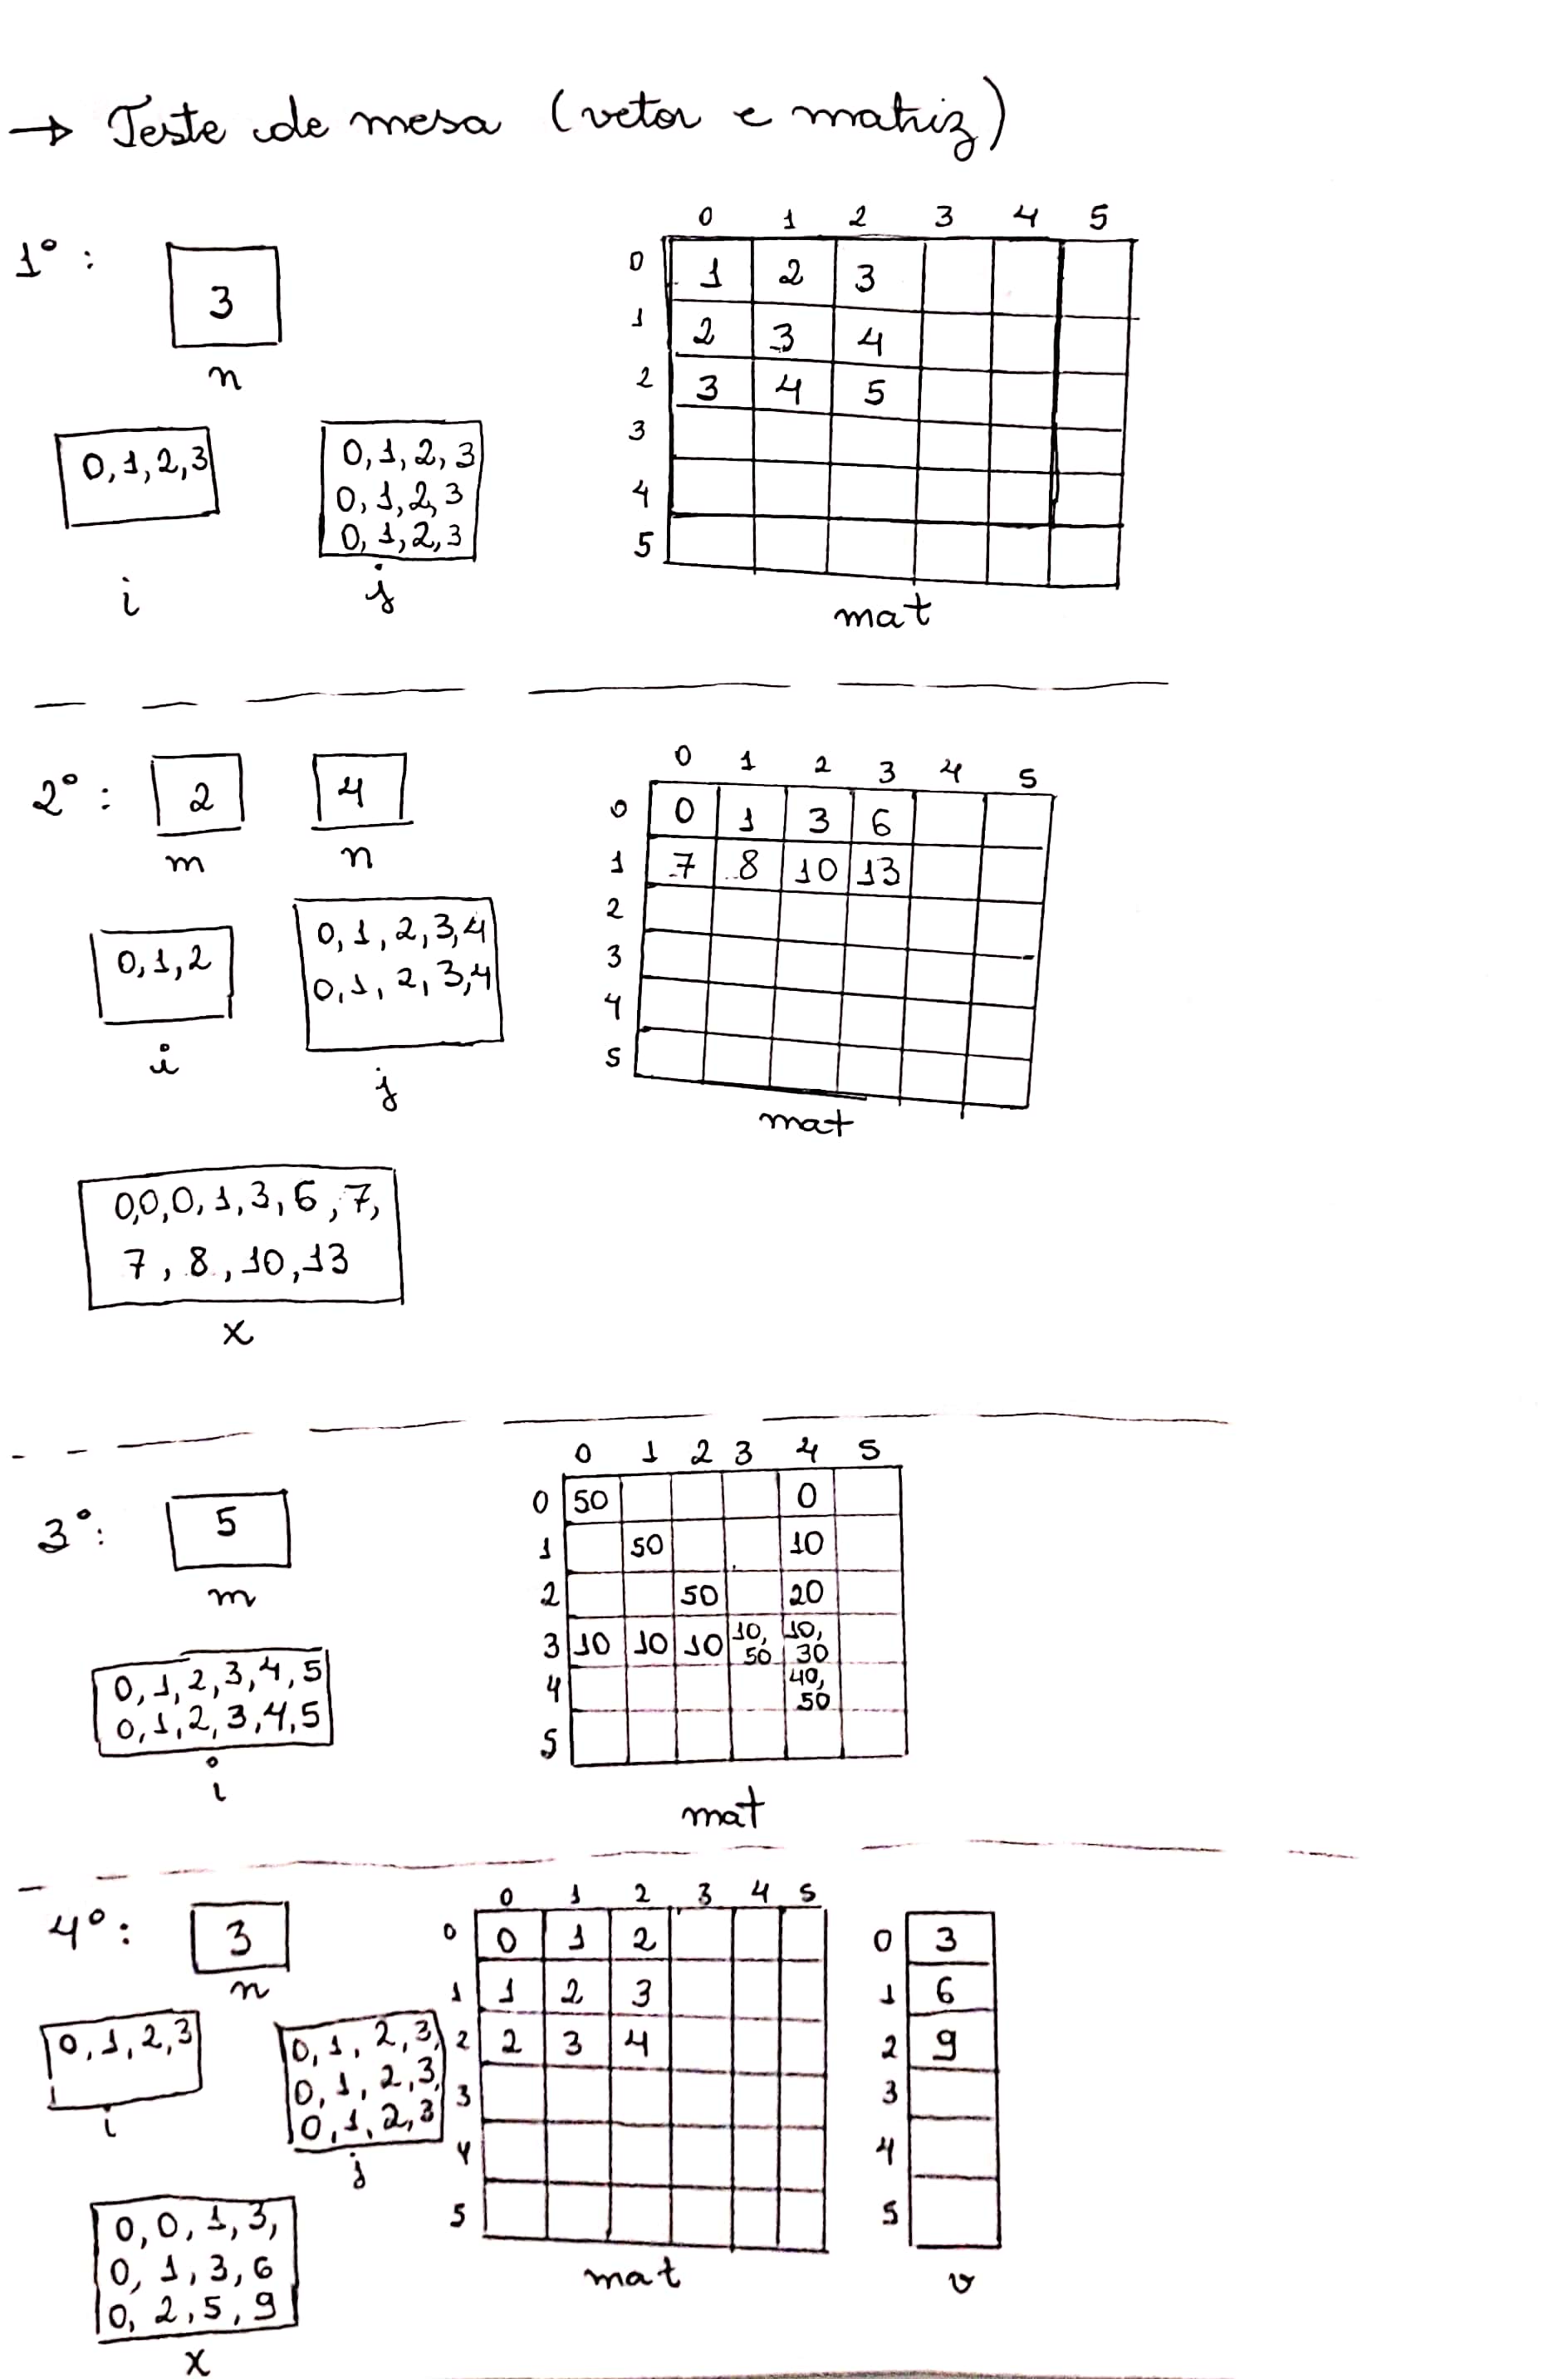 → Teste de mesa (vetor e matriz)
1º:
3
n
0,1,2,3
i
0,1,2,3
0,1,2,3
0,1,2,3
j
0 1 2 3 4 5
0 1 2 3
1 2 3 4
2 3 4 5
3
4
5
mat
2º:
2
m
4
n
0,1,2
i
0,1,2,3,4
0,1,2,3,4
j
0 1 2 3 4 5
0 0 1 3 6
1 7 8 10 13
2
3
4
5
mat
0,0,0,1,3,6,7,
7,8,10,13
x
3º:
5
m
0,1,2,3,4,5
0,1,2,3,4,5
i
0 1 2 3 4 5
0 50 0
1 50 10
2 50 20
3 10 10 10 10, 10,
50 30
4 40,
50
5
mat
4º:
3
n
0,1,2,3
i
0,1,2,3,
0,1,2,3,
0,1,2,3
j
0,0,1,3,
0,1,3,6
0,2,5,9
x
0 1 2 3 4 5
0 0 1 2
1 1 2 3
2 2 3 4
3
4
5
mat
0 3
1 6
2 9
3
4
5
v